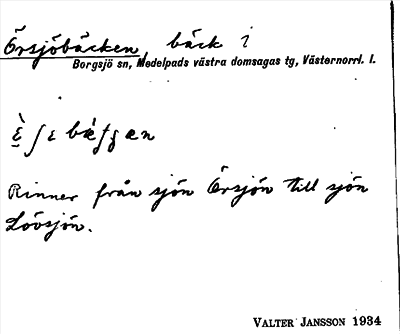 Örsjöbäcken, bäck i
Borgsjö sn, Medelpads västra domsagas tg, Västernorrl. l.
Rinner från sjön Örsjön till sjön
Lövsjön.
VALTER JANSSON 1934